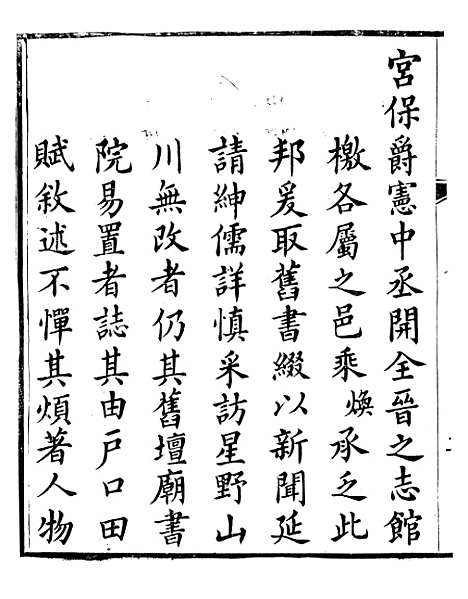 宮保爵憲中丞開全晉之志館
檄各屬之邑乘煥承乏此
邦爰取舊書綴以新聞延
請紳儒詳慎采訪星野山
川無改者仍其舊壇廟書
院易置者誌其由戶口田
賦敘述不憚其煩著人物